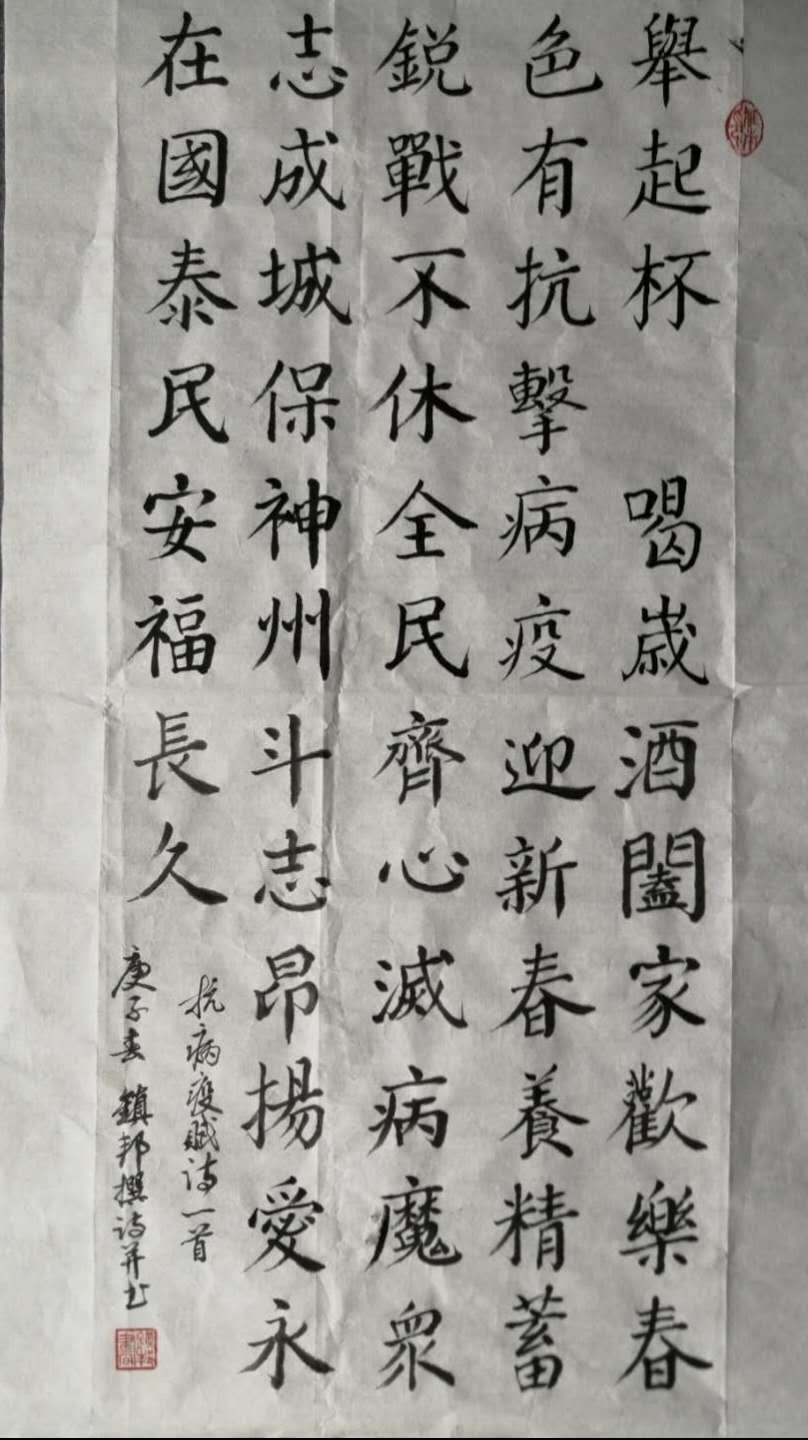 舉起杯 喝歲酒闔家歡樂春
色有抗擊病疫迎新春養精蓄
鋭戰不休全民齊心滅病魔衆
志成城保神州斗志昂揚愛永
在國泰民安福長久
抗病疫賦詩一首
庚子春 鎮邦撰詩并书